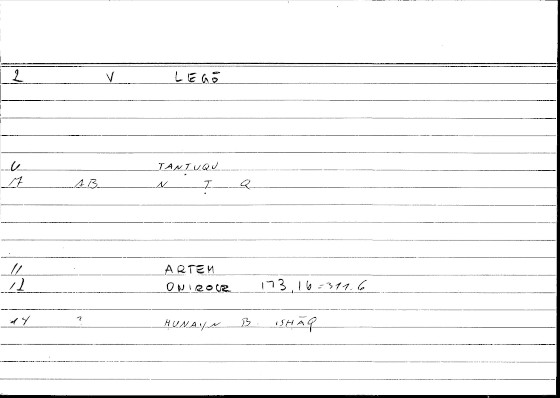 2 V LEGŌ
6 TANṬUQU
17 AB. N Ṭ Q
11 ARTEM
12 ONIROCR 173,16=311.6
14 ? HUNAYN B. ISHĀQ